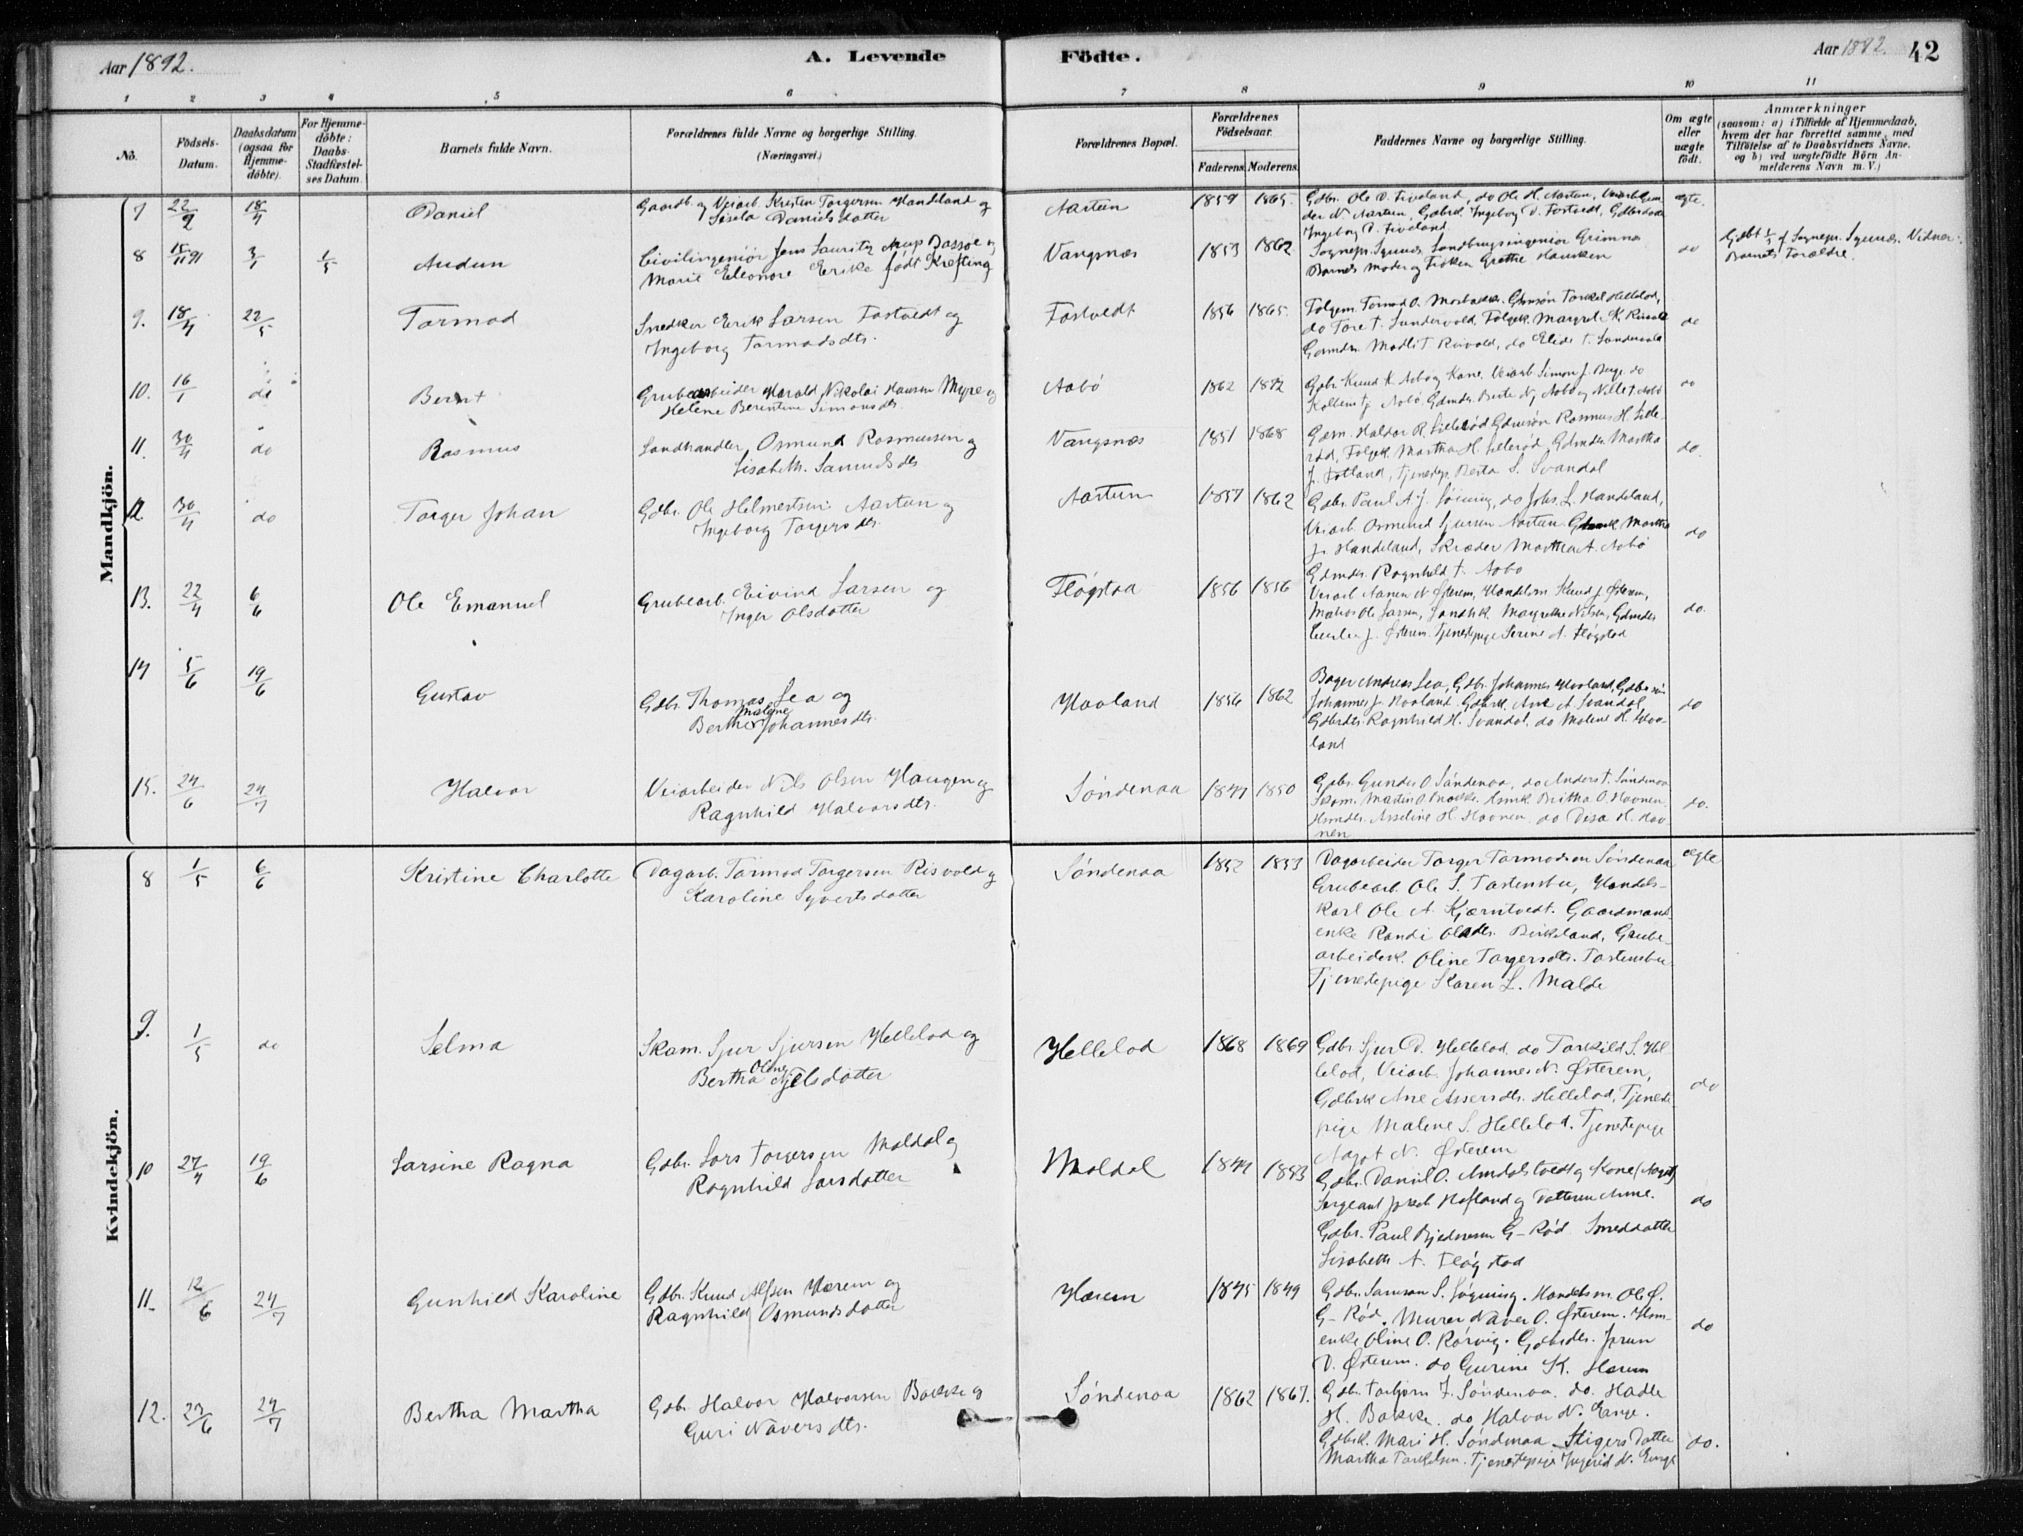 Aar 1892.
A. Levende
Födte.
Aar 1892.
42
1 2 3 4 5 6 7 8 9 10 11
No.
Födsels-Datum.
Daabsdatum (ogsaa for Hjemme-döbte).
For Hjemme-döbte: Daabs-Stadfæstelses Datum.
Barnets fulde Navn.
Forældrenes fulde Navne og borgerlige Stilling.
(Næringsvei.)
Forældrenes Bopæl.
Forældrenes Födselsaar.
Faderens. Moderens.
Faddernes Navne og borgerlige Stilling.
Om ægte eller uægte födt.
Anmærkninger
(saasom: a) i Tilfælde af Hjemmedaab, hvem der har forrettet samme, med Tilföielse af to Daabsvidners Navne. og b) ved uægtefödte Börn Anmelderens Navn m. V.)
Mandkjön.
7 22/2 18/4 Daniel
Gaardb. og Veiarb. Kristen Torgersen Handeland og
Sisela Danielsdatter
Aartun 1859 1865.
Gdbr. Ole D. Fiveland, do Ole H. Aartun,
der N. Aartun, Gdbrk. Ingeborg D. Fostvedt, Gdbrdatter
Ingeborg D. Fiveland
ægte.
8 15/11 91 3/1 1/5 Audun
Civilingeniör Jens Lauritz Arup Dassoe og
Marie Eleonore Erike født Krefting
Vangsnæs 1853 1862
Sognepr. Synnes, Landbrugsingeniör Grimnæs
Barnets Moder og Frøken Grethe Hansken
do
Gdbt 1/5 af Sognepr. Synnes. Vidner:
Barnets Forældre.
9. 18/4 22/5 Tormod
Snedker Erik Larsen Fostvedt og
Ingeborg Tormodsdtr.
Fostvedt 1856 1865.
Folgem. Tormod O. Mosbakke. Gdmsön Torkel Hellelod,
do Tore T. Sundervold, Folgek. Margrete K. Risvold
Gdmdtr. Madli T. Risvold, do Elide T. Sundervold
do
10. 16/1 do Bernt
Grubearbeider Harald Nikolai Hansen Myre og
Helene Berentine Simonsdtr.
Aabö 1862 1872
Gdbr. Knud K. Aabö og Kone, Veiarb. Simon J. Berge, do
Kolben J. Aabö, Gdmdtr. Berte N. Aabö og Nille T. Aabö
do
11. 30/4 do Rasmus
Landhandler Osmund Rasmusen og
Lisabeth Samuelsdtr.
Vangsnæs 1851 1868
Gdm. Haldor R. Lillerød Gdmsön Rasmus H. Lille-
rød, Folgek. Martha H. Lillerød, Gdmdtr. Martha
J. Fotland, Tjenestep. Berta S. Svandal
do.
12. 30/4 do Torger Johan
Gdbr. Ole Helmertsen Aartun og
Ingeborg Torgersdtr.
Aartun 1857 1862
Gdbr. Paul A. J. Søining, do Johs. L. Handeland,
Veiarb. Osmund Sjursen Aartun Gdbrk. Martha
J. Handeland, Skræder Marthea A. Aabö
Gdmdtr. Ragnhild T. Aabo
do
13. 22/4 6/6 Ole Emanuel
Grubearb. Eivind Larsen og
Inger Olsdatter
Fløgstad 1856 1856
Veiarb. Aanen N. Østerem, Handelsm. Knud J. Østerem,
Matros Ole Larsen, Landhk. Margrethe Nilsen, Gdmdtr.
J. Østerem. Tjenestepige Serine A. Fløgstad
do.
14 5/6 19/6 Gustav
Gdbr. Thomas Lea og
Berthe Malene Johannesdtr.
Hovland 1856 1862
Bager Andreas Lea, Gdbr. Johannes Hovland, Gdbrsön
Johannes J. Hovland Gdbrk. Ane A. Svandal,
Gdbrdtr. Ragnhild H. Svandal, do Malene H. Hov-
land
do
15. 24/6 24/7 Halvor
Veiarbeider Nils Olsen Haugen og
Ragnhild Halvorsdtr.
Søndenaa 1849 1850
Gdbr. Gunder O. Søndenaa, do Anders T. Søndenaa
Skom. Martin O. Hsmk. Britha O. Hovnen
Hsmdtr. Asseline H. Hovnen, do Disa H. Hov-
nen
do.
Kvindekjön.
8 1/5 6/6 Kristine Charlotte
Dagarb. Tormod Torgersen Risvold og
Karoline Syvertsdatter
Søndenaa 1852 1853
Dagarbeider Torger Tormodsen Søndenaa
Grubearb. Ole S. Tastensbu, Handels-
karl Ole A. Kjærntvedt. Gaardmands-
enke Randi Olsdtr. Birkeland, Grube-
arbeiderk. Oline Torgersdtr. Tastensbu
Tjenestepige Karen L. Malde
ægte
9. 1/5 do Selma
Skom. Sjur Sjursen Hellelod og
Bertha Oline Njelsdatter
Hellelod 1868 1869
Gdbr. Sjur D. Hellelod, do Torkild S. Hel-
lelod, Veiarb. Johannes N. Østerem,
Gdbrk. Ane Assersdtr. Hellelod, Tjeneste-
pige Malene S. Hellelod. Tjenestepige
Aagot N. Østerem
do
10 27/4 19/6 Larsine Ragna
Gdbr. Lars Torgersen Moldal og
Ragnhild Larsdatter
Moldal 1844 1853
Gdbr. Daniel O. Amdalstvedt og Kone (Aagot)
Sergeant Jacob Hofland og Datteren Anne.
Gdbr. Paul Bjednesen G-Rød. Smeddatter
Lisabeth A. Fløgstad
do
11. 12/6 24/7 Gunhild Karoline
Gdbr. Knud Alfsen Hærem og
Ragnhild Osmundsdatter
Hærem 1845 1849
Gdbr. Samson S. Søining. Handelsm. Ole Ø.
G-Rød. Murer Naver O. Østerem. Hsm-
enke Oline O. Rørvig. Gdbrdtr. Jorun
D. Østerem. do Gurine K. Hærem
do
12. 27/6 24/7 Bertha Martha
Gdbr. Halvor Halvorsen Bakke og
Guri Naversdtr.
Søndenaa 1862 1867.
Gdbr. Torbjørn T. Søndenaa. do. Hadle
H. Bakke. do Halvor N. Eange.
Gdbrk. Mari H. Søndenaa. Stigers Datter
Martha Torkelsen. Tjenestepige Ingerid N. Eange
do.